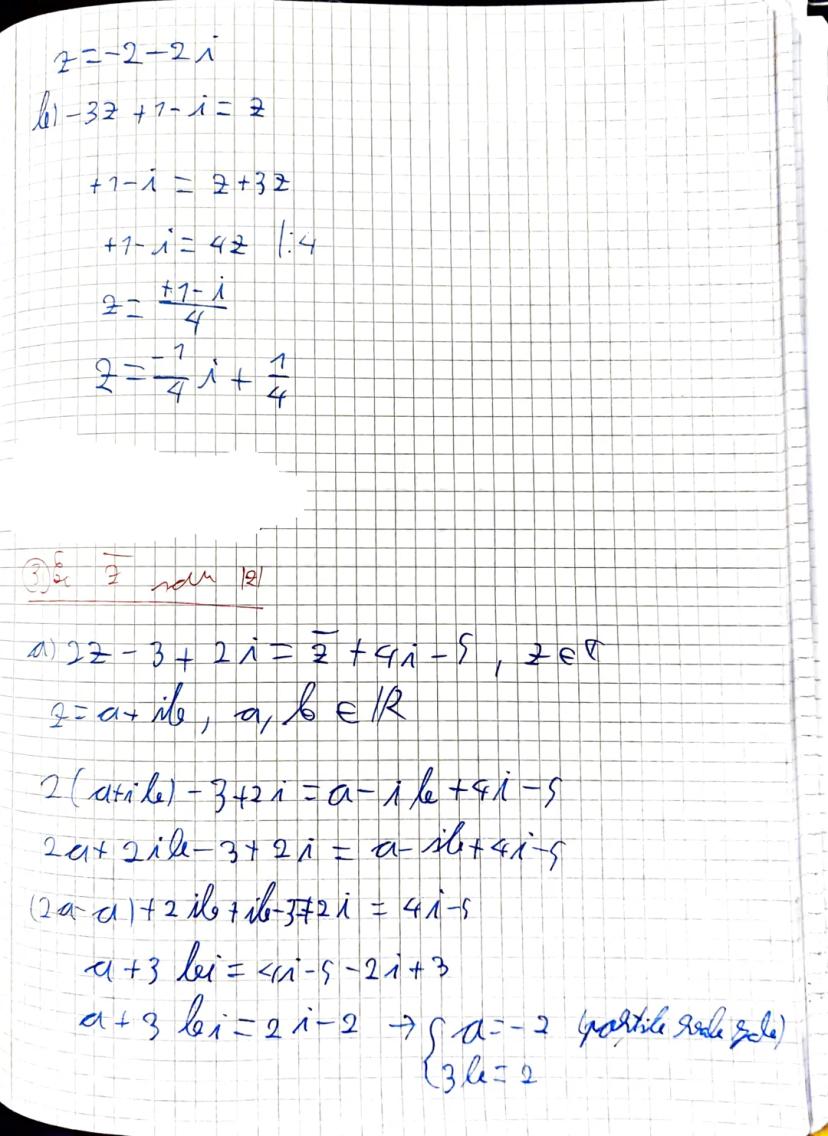 z = -2 - 2i
b) -3z + 1 - i = z
+1 - i = z + 3z
+1 - i = 4z |:4
z = \frac{+1-i}{4}
z = \frac{-1}{4} i + \frac{1}{4}
③ z̄ sau |z|
a) 2z - 3 + 2i = z̄ + 4i - 5, z ∈ ℂ
z = a + ib, a, b ∈ ℝ
2(a + ib) - 3 + 2i = a - ib + 4i - 5
2a + 2ib - 3 + 2i = a - ib + 4i - 5
(2a - a) + 2ib + ib - 3 + 2i = 4i - 5
a + 3bi = 4i - 5 - 2i + 3
a + 3bi = 2i - 2 → { a = -2 (părțile reale egale)
3b = 2